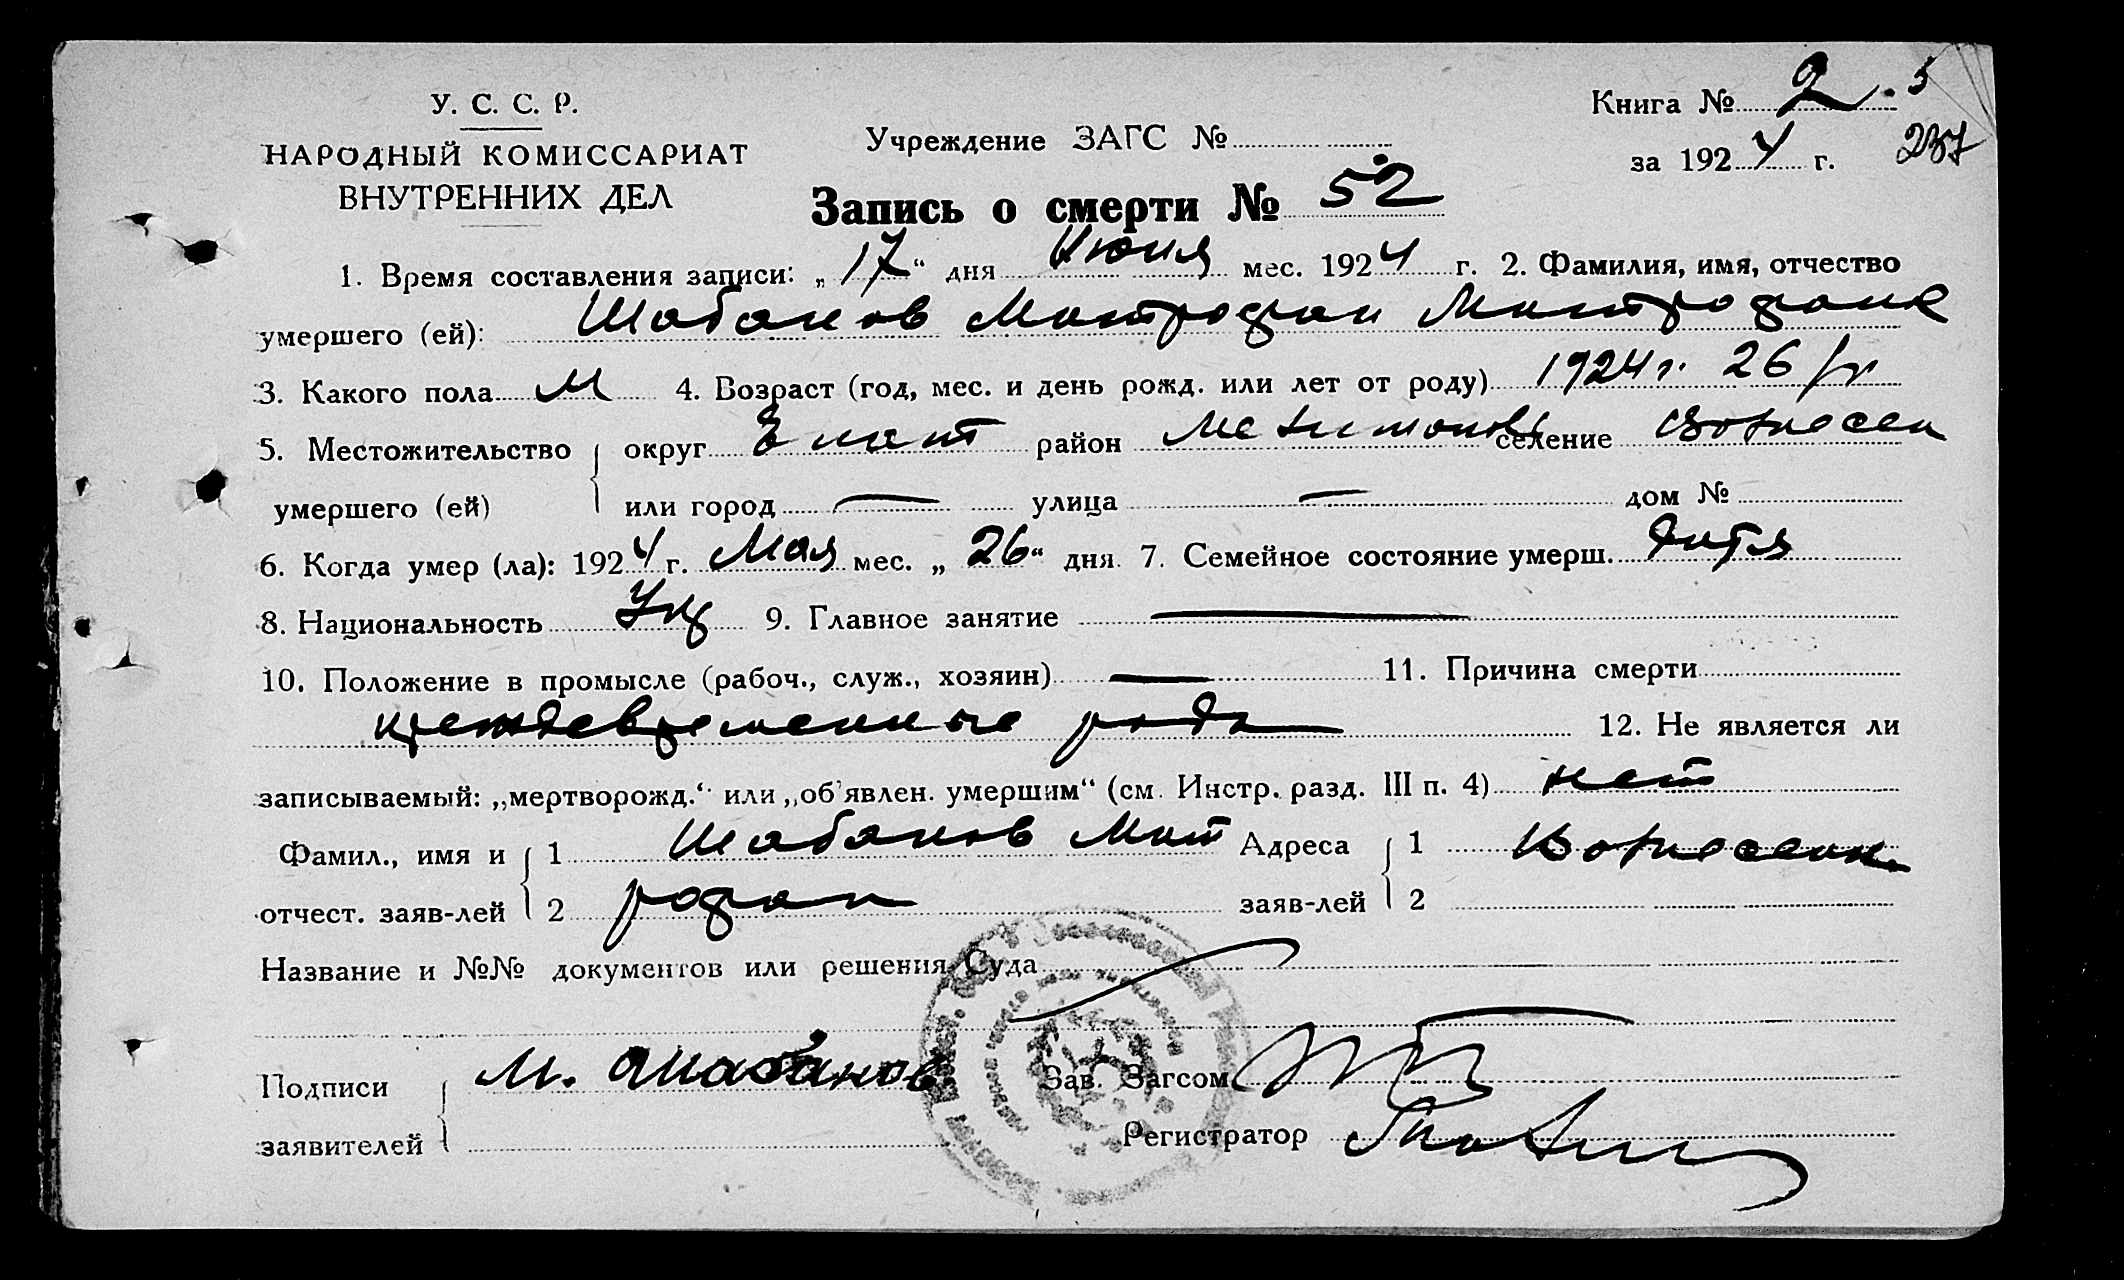 У. С. С. Р.
НАРОДНЫЙ КОМИССАРИАТ
ВНУТРЕННИХ ДЕЛ
Учреждение ЗАГС №
Книга № 2. 5
за 1924 г. 237
Запись о смерти № 52
1. Время составления записи: „17“ дня Июня мес. 1924 г. 2. Фамилия, имя, отчество
умершего (ей): Шабанов Митрофан Митрофане
3. Какого пола М 4. Возраст (год, мес. и день рожд. или лет от роду) 1924 г. 26
5. Местожительство округ район селение Вознесен
умершего (ей) или город — улица — дом №
6. Когда умер (ла): 1924 г. Мая мес. „26“ дня. 7. Семейное состояние умерш. Дитя
8. Национальность Укр 9. Главное занятие —
10. Положение в промысле (рабоч., служ., хозяин) — 11. Причина смерти
преждевременные роды 12. Не является ли
записываемый: „мертворожд.“ или „об'явлен. умершим“ (см. Инстр. разд. III п. 4) нет
Фамил., имя и 1 Шабанов Мит Адреса 1 Вознесенк.
отчест. заяв-лей 2 рофан заяв-лей 2
Название и №№ документов или решения Суда
Подписи М. Шабанов Зав. Загсом
заявителей Регистратор